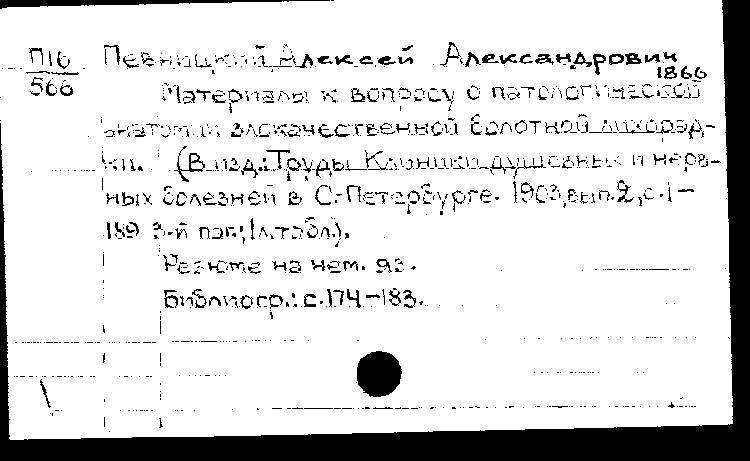 П16 Певницкий, Алексей Александрович
566 1866
Материалы к вопросу о патологической
анатомии злокачественной болотной лихорад-
ки. (В изд.: Труды Клиники душевных и нерв-
ных болезней в С.-Петербурге. 1903, вып. 2, с. 1-
189 3-й паг.; 1 л. табл.).
Резюме на нем. яз.
Библиогр.: с. 174-183.